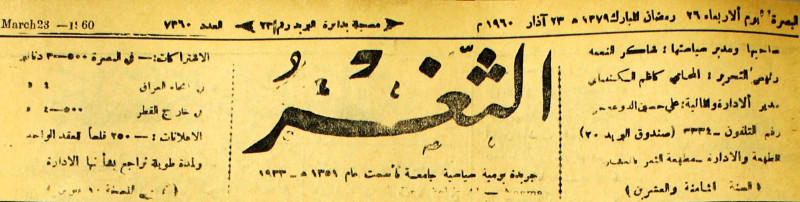 البصرة "يوم الاربعاء ٢٦ رمضان المبارك ١٣٧٩ ه ٢٣ آذار ١٩٦٠ م
مسجلة بدائرة البريد رقم ٢٣
العدد ٧٣٦٠
March 23 - 1960
صاحبها ومدير سياستها: شاكر النعمه
رئيس التحرير: المحامي كاظم
مدير الادارة والمالية: علي حسين
رقم التلفون - ٣٣٣٤ (صندوق البريد ٢٠)
المطبعة والادارة - مطبعة الثغر
(السنة الثامنة والعشرين)
الثغر
جريدة يومية سياسية جامعة تأسست عام ١٣٥١ ه - ١٩٣٣
الاشتراكات: - في البصرة ٥٠٠-٣ دنانير
انحاء العراق ٤
خارج القطر ٥٠٠-٤
الاعلانات: - ٢٥٠ فلساً للعقد الواحد
ولمدة طويلة تراجع بشأنها الادارة
النسخة ١٠